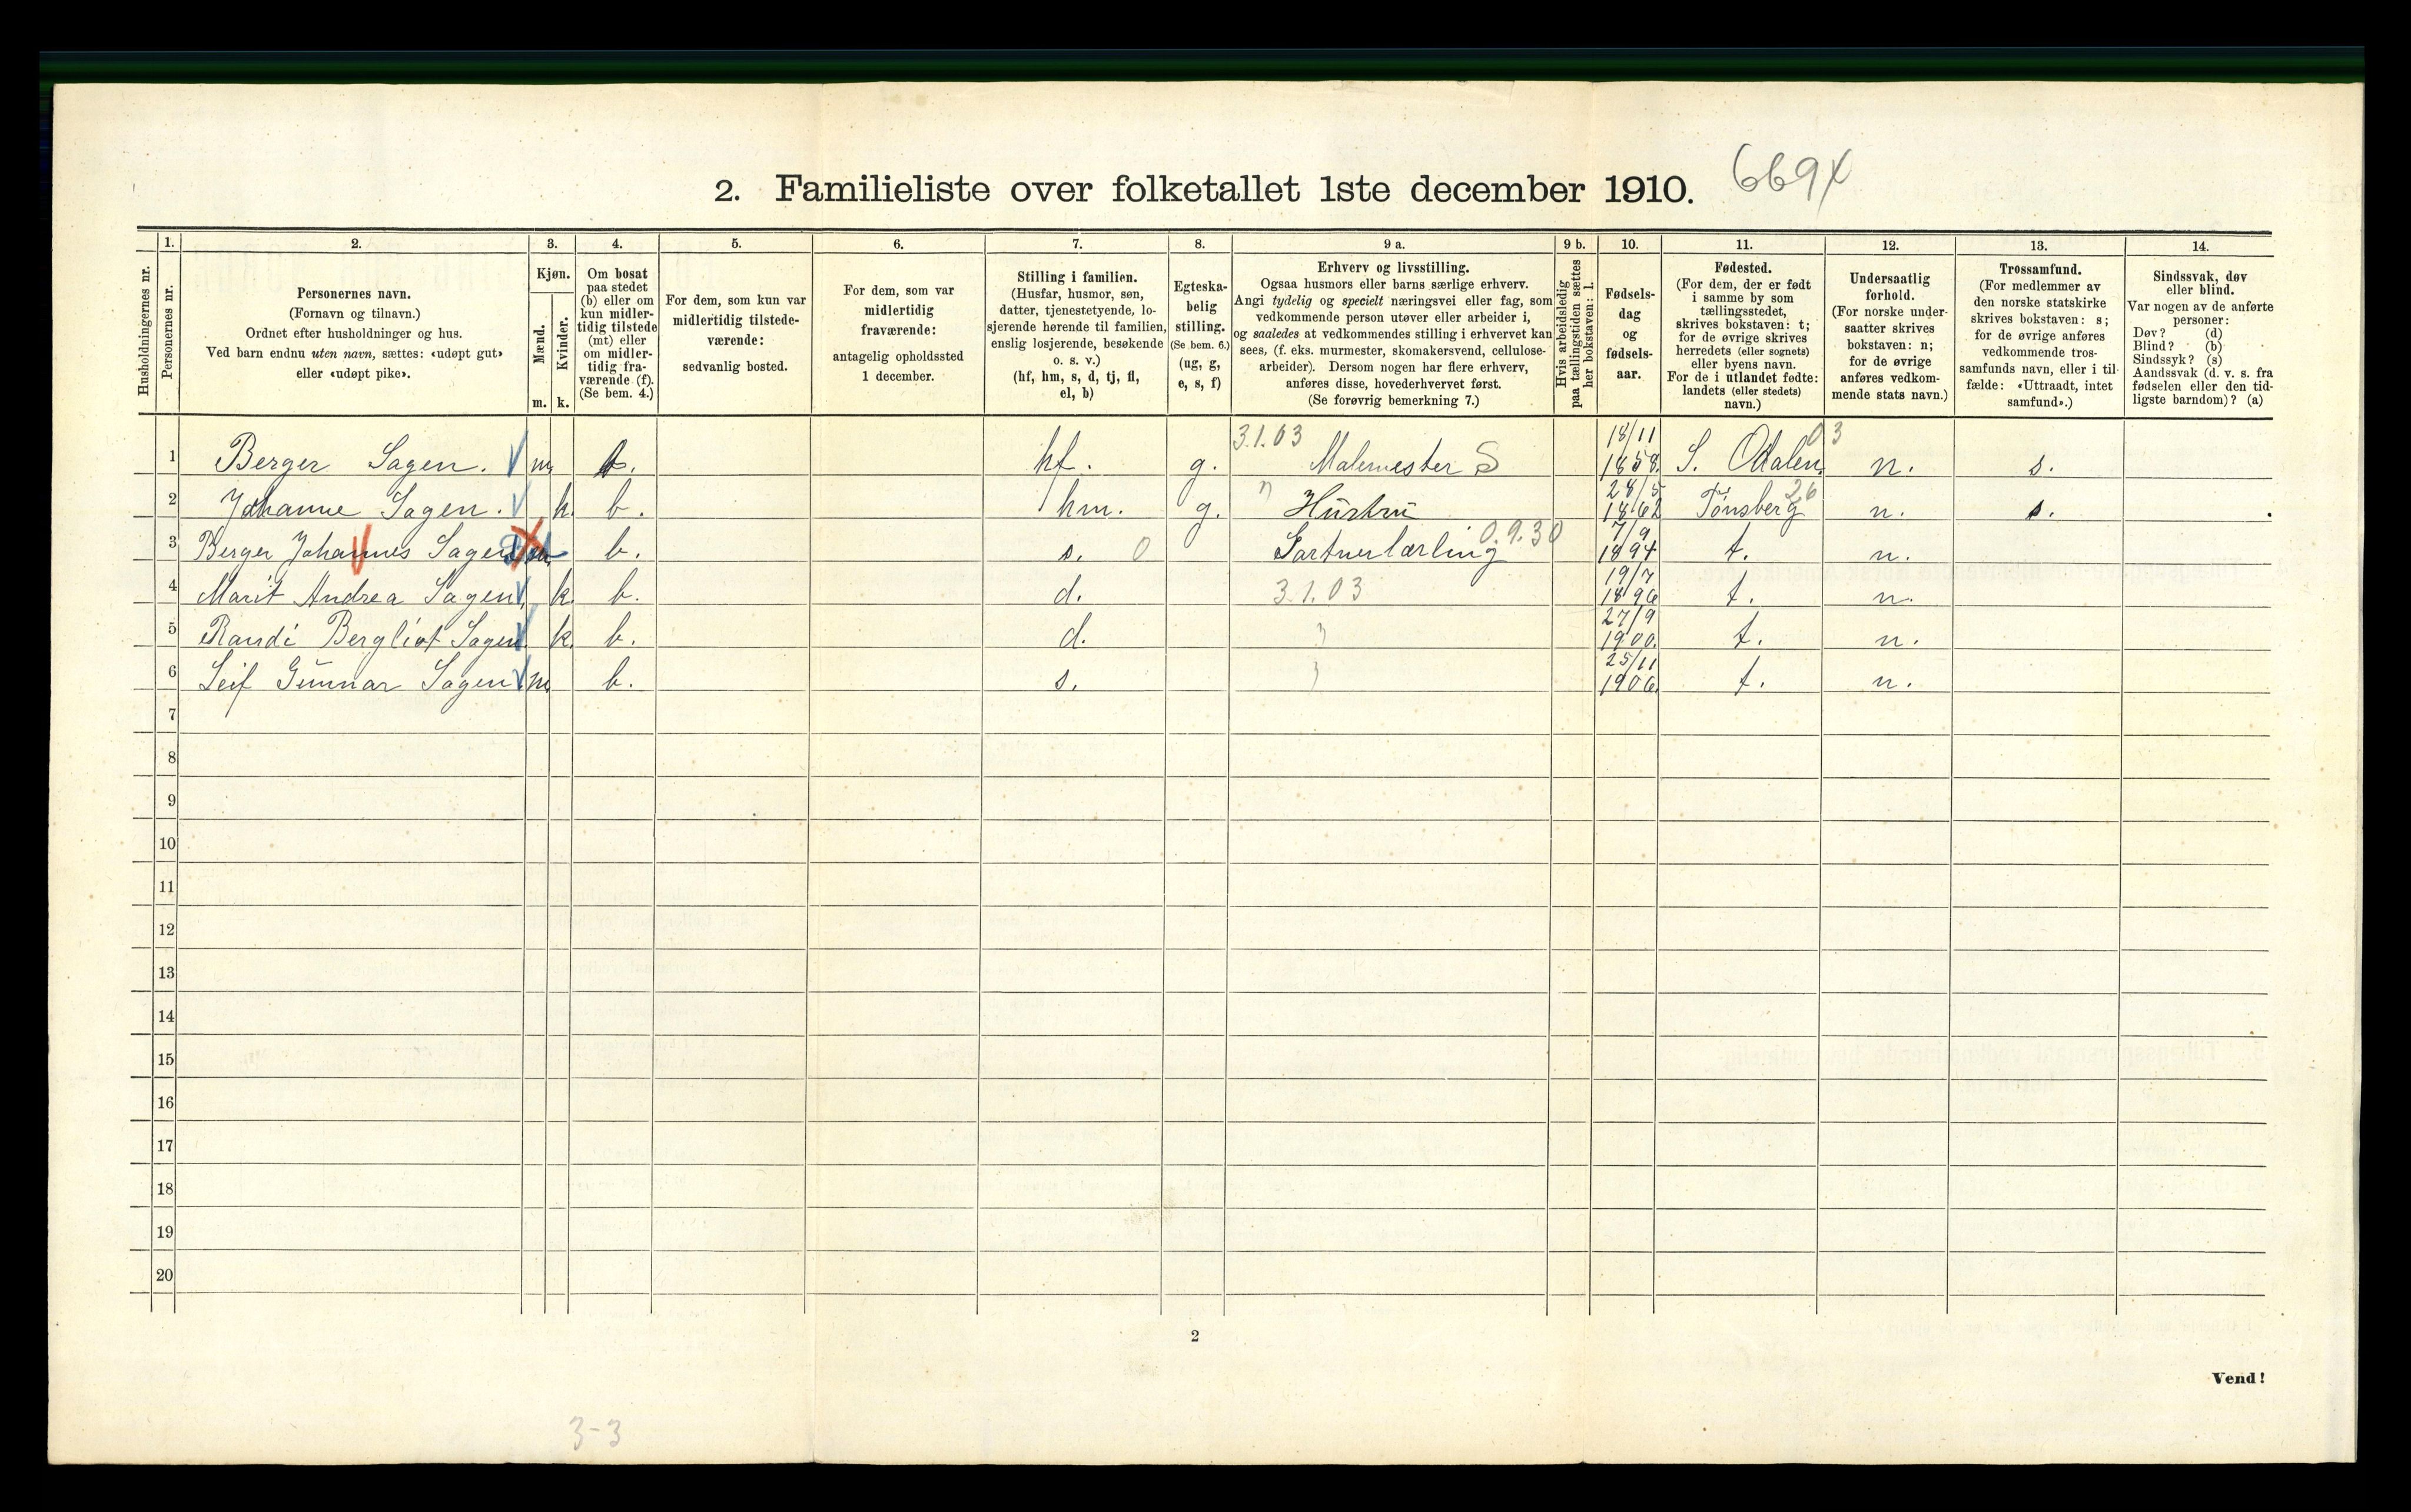 2. Familieliste over folketallet 1ste december 1910. 669x
1. 2. 3. 4. 5. 6. 7. 8. 9 a. 9 b. 10. 11. 12. 13. 14.
Husholdningernes nr.
Personernes nr.
Personernes navn.
(Fornavn og tilnavn.)
Ordnet efter husholdninger og hus.
Ved barn endnu uten navn, sættes: «udøpt gut»
eller «udøpt pike».
Kjøn.
Mænd.
Kvinder.
m. k.
Om bosat
paa stedet
(b) eller om
kun midler-
tidig tilstede
(mt) eller
om midler-
tidig fra-
værende (f).
(Se bem. 4.)
For dem, som kun var
midlertidig tilstede-
værende:
sedvanlig bosted.
For dem, som var
midlertidig
fraværende:
antagelig opholdssted
1 december.
Stilling i familien.
(Husfar, husmor, søn,
datter, tjenestetyende, lo-
sjerende hørende til familien,
enslig losjerende, besøkende
o. s. v.)
(hf, hm, s, d, tj, fl,
el, b)
Egteska-
belig
stilling.
(Se bem. 6.)
(ug, g,
e, s, f)
Erhverv og livsstilling.
Ogsaa husmors eller barns særlige erhverv.
Angi tydelig og specielt næringsvei eller fag, som
vedkommende person utøver eller arbeider i,
og saaledes at vedkommendes stilling i erhvervet kan
sees, (f. eks. murmester, skomakersvend, cellulose-
arbeider). Dersom nogen har flere erhverv,
anføres disse, hovederhvervet først.
(Se forøvrig bemerkning 7.)
Hvis arbeidsledig
paa tællingstiden sættes
her bokstaven: l.
Fødsels-
dag
og
fødsels-
aar.
Fødested.
(For dem, der er født
i samme by som
tællingsstedet,
skrives bokstaven: t;
for de øvrige skrives
herredets (eller sognets)
eller byens navn.
For de i utlandet fødte:
landets (eller stedets)
navn.)
Undersaatlig
forhold.
(For norske under-
saatter skrives
bokstaven: n;
for de øvrige
anføres vedkom-
mende stats navn.)
Trossamfund.
(For medlemmer av
den norske statskirke
skrives bokstaven: s;
for de øvrige anføres
vedkommende tros-
samfunds navn, eller i til-
fælde: «Uttraadt, intet
samfund».)
Sindssvak, døv
eller blind.
Var nogen av de anførte
personer:
Døv? (d)
Blind? (b)
Sindssyk? (s)
Aandssvak (d. v. s. fra
fødselen eller den tid-
ligste barndom)? (a)
1 Berger Sagen. m b. hf. g. 3.1.03 Malemester S 18/11 1858. S. Odalen 03 n. s.
2 Johanne Sagen. k. b. hm. g. Hustru 28/5 1862 Tønsberg 26 n. s.
3 Berger Johannes Sagen b. s. 0 Gartnerlærling 0.9.30 7/9 1894 t. n.
4 Marit Andrea Sagen k. b. d. 3.1.03 19/7 1896 t. n.
5 Randi Bergliot Sagen k. b. d. 27/9 1900. t. n.
6 Leif Gunnar Sagen m b. s. 25/11 1906. t. n.
7
8
9
10
11
12
13
14
15
16
17
18
19
20
2
Vend!
3-3